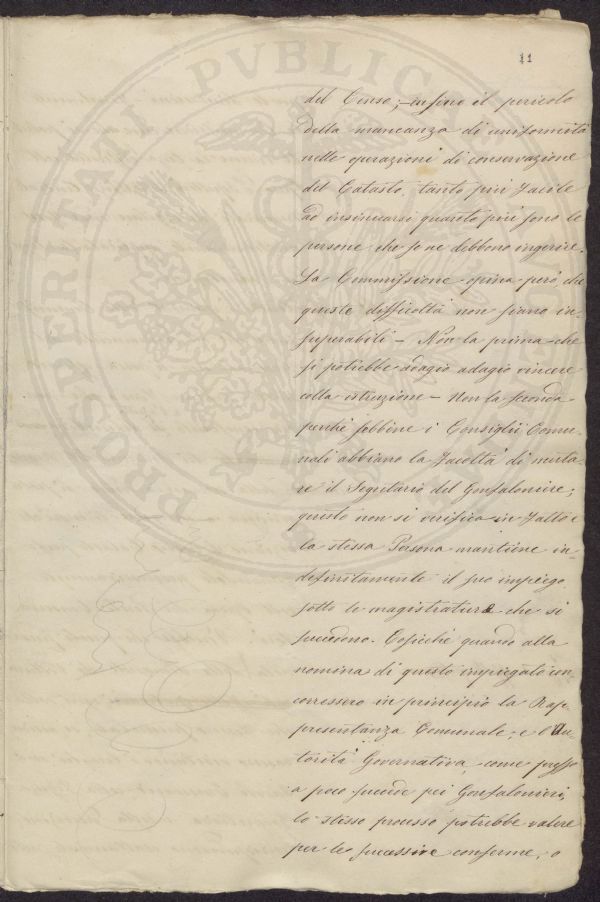 11
del Censo; infino il pericolo
della mancanza di uniformità
nelle operazioni di conservazione
del Catasto, tanto più facile
ad insinuarsi quanto più sono le
persone che se ne debbono ingerire.
La Commissione opina però che
queste difficoltà non siano in-
superabili – Non la prima che
si potrebbe adagio adagio vincere
colla istruzione – Non la seconda
perché sebbene i Consiglii Comu-
nali abbiano la facoltà di muta-
re il Segretario del Gonfaloniere;
questo non si verifica in fatto e
la stessa Persona mantiene in-
definitamente il suo impiego
sotto le magistrature che si
succedono. Cosicché quando alla
nomina di questo impiegato con-
corressero in principio la Rap-
presentanza Comunale, e l'Au-
torità Governativa, come presso
a poco succede pei Gonfalonieri,
lo stesso processo potrebbe valere
per le successive conferme, o
PROSPERITATI PVBLICAE